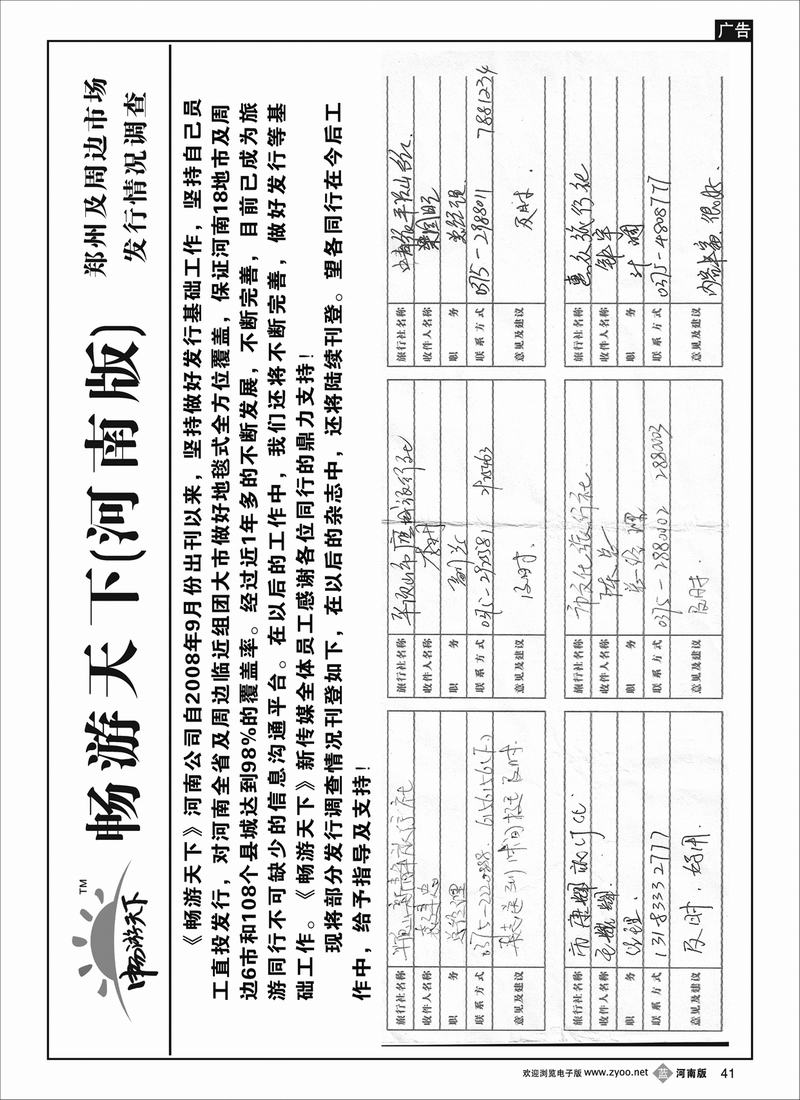 广告
畅游天下
TM
畅游天下(河南版)
郑州及周边市场
发行情况调查
《畅游天下》河南公司自2008年9月份出刊以来，坚持做好发行基础工作，坚持自己员
工直投发行，对河南全省及周边临近组团大市做好地毯式全方位覆盖，保证河南18地市及周
边6市和108个县城达到98%的覆盖率。经过近1年多的不断发展，不断完善，目前已成为旅
游同行不可缺少的信息沟通平台。在以后的工作中，我们还将不断完善，做好发行等基
础工作。《畅游天下》新传媒全体员工感谢各位同行的鼎力支持！
现将部分发行调查情况刊登如下，在以后的杂志中，还将陆续刊登。望各同行在今后工
作中，给予指导及支持！
旅行社名称
收件人名称
职务 总经理
联系方式 0375-2222088
意见及建议
旅行社名称 平顶山市 旅行社
收件人名称
职务
联系方式 0375-2920581
意见及建议 及时.
旅行社名称
收件人名称
职务
联系方式 0375-2988011 7881234
意见及建议 及时.
旅行社名称
收件人名称
职务 经理
联系方式 13183332777
意见及建议 及时.好用
旅行社名称 市文化旅行社
收件人名称
职务 总经理
联系方式 0375-2880002 2880003
意见及建议 及时.
旅行社名称
收件人名称
职务 计调
联系方式 0375-4808777
意见及建议 内容丰富.很好.
欢迎浏览电子版 www.zyoo.net 蓝 河南版 41